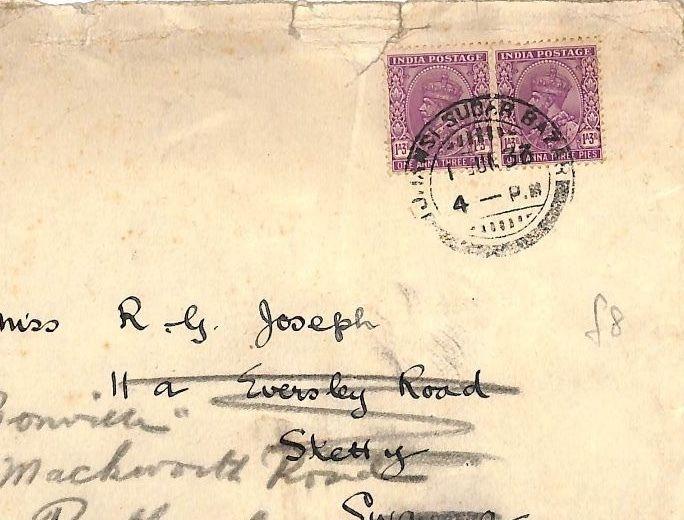 INDIA POSTAGE INDIA POSTAGE
1A3P 1A3P 1A3P
ONE ANNA THREE PIES ONE ANNA THREE PIES
SUDAR BAZAR
1 JUN 37
4 — P.M
Miss R. G. Joseph
£8
11 a Eversley Road
Sketty
Mackworth Road
Swansea